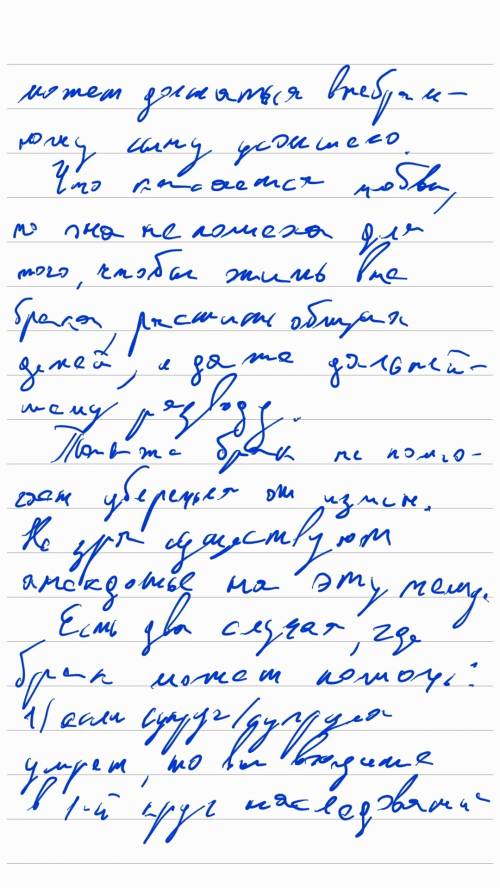 может достаться внебрач-
ному сыну усопшего.
Что касается любви,
то она не помеха для
того, чтобы жить вне
брака, растить общих
детей, и даже дальней-
шему разводу.
Также брак не помо-
гает уберечься от измен.
Не зря существуют
анекдоты на эту тему.
Есть два случая, где
брак может помочь:
1/ если супруг/супруга
умрет, то вы входите
в 1-й круг наследования